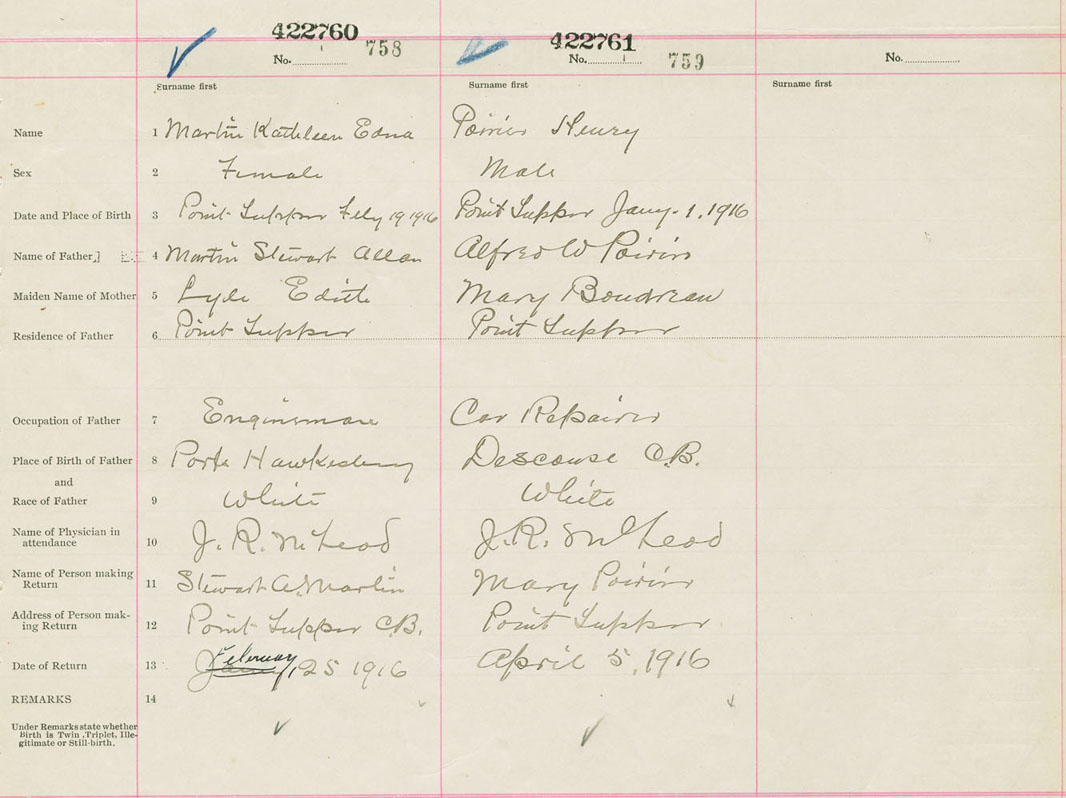 422760
No. 758
422761
No. 759
No.
Surname first
Surname first
Surname first
Name 1 Martin Kathleen Edna Poirier Henry
Sex 2 Female Male
Date and Place of Birth 3 Point Tupper Feby 19 1916 Point Tupper Jany. 1, 1916
Name of Father,] 4 Martin Stewart Allan Alfred W Poirier
Maiden Name of Mother 5 Lyle Edith Mary Boudreau
Residence of Father 6 Point Tupper Point Tupper
Occupation of Father 7 Engineman Car Repairer
Place of Birth of Father 8 Port Hawkesbury Descouse C.B.
and
Race of Father 9 White White
Name of Physician in
attendance 10 J. R. McLeod J. R. McLeod
Name of Person making
Return 11 Stewart A. Martin Mary Poirier
Address of Person mak-
ing Return 12 Point Tupper C.B. Point Tupper
February
Date of Return 13 Jany, 25 1916 April 5, 1916
REMARKS 14
Under Remarks state whether
Birth is Twin, Triplet, Ille-
gitimate or Still-birth.